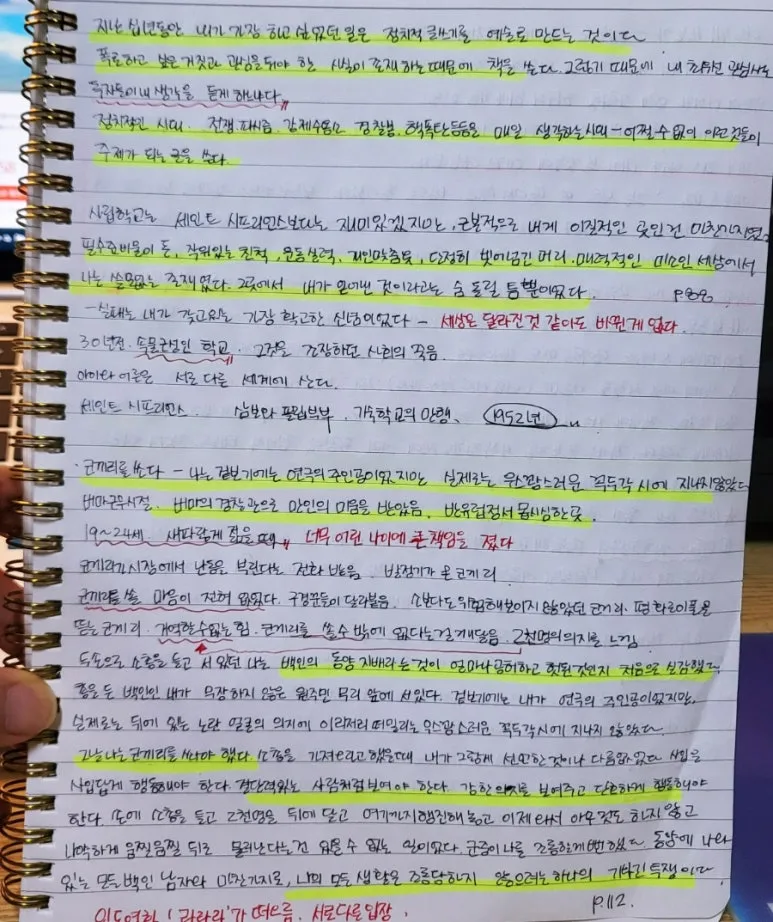 지난 십년동안 내가 가장 하고 싶었던 일은 정치적 글쓰기를 예술로 만드는 것이다
폭로하고 싶은 거짓과 관심을 둬야 한 사실이 존재하는 때문에 책을 쓴다. 그렇기 때문에 내 최우선 관심사는
독자들이 내 생각을 듣게 하는거다.
정치적인 시대. 전쟁, 파시즘, 강제수용소 경찰봉, 핵폭탄등등을 매일 생각하는 시대 - 어쩔 수 없이 이런 것들이
주제가 되는 글을 쓴다.
사립학교는 세인트 시프리언스보다는 재미있겠지만, 근본적으로 내게 이질적인 곳인건 마찬가지였다.
필수준비물이 돈, 작위있는 친척, 운동실력, 개인맞춤옷, 단정히 빗어넘긴 머리, 매력적인 미소인 세상에서
나는 쓸모없는 존재였다. 그곳에서 내가 얻어낸 것이라고는 숨 돌릴 틈뿐이었다. P.88
- 실패는 내가 갖고있는 가장 확고한 신념이었다 - 세상은 달라진것 같아도 바뀐게 없다.
30년전. 속물근성인 학교. 그것을 긴장하던 사회의 죽음.
아이와 어른은 서로 다른 세계에 산다.
세인트 시프리언스. 삼보와 플립부부. 기숙학교의 만행. 1952년
· 코끼리를 쏘다 - 나는 겉보기에는 연극의 주인공이었지만 실제로는 우스꽝스러운 꼭두각시에 지나지 않았다
버마근무시절. 버마의 경찰관으로 만인의 미움을 받았음. 반유럽정서 몹시심한곳.
19~24세. 새파랗게 젊을때 너무 어린 나이에 큰 책임을 졌다
코끼리가 시장에서 난동을 부린다는 전화 받음. 발정기가 온 코끼리
코끼리를 쏠 마음이 전혀 없었다. 구경꾼들이 달라붙음. 소보다도 위험해보이지 않았던 코끼리. 평화로이 풀을
뜯는 코끼리. 거역할수없는 힘. 코끼리를 쏠 수 밖에 없다는걸 깨달음. 2천명의 의지를 느낌
두손으로 소총을 들고 서 있던 나는 백인의 동양 지배라는 것이 얼마나 공허하고 헛된것인지 처음으로 실감했다.
총을 든 백인인 내가 무장하지 않은 원주민 무리 앞에 서있다. 겉보기에는 내가 연극의 주인공이었지만,
실제로는 뒤에 있는 노란 얼굴의 의지에 이리저리 떠밀리는 우스꽝스러운 꼭두각시에 지나지 않았다.
그날 나는 코끼리를 쏴야 했다. 소총을 가져오라고 했을때 내가 그렇게 선언한 것이나 다름없었다. 사힙을
사힙답게 행동해야 한다. 결단력있는 사람처럼 보여야 한다. 강한 의지를 보여주고 단호하게 행동해야
한다. 손에 소총을 들고 2천명을 뒤에 달고 여기까지 행진해 놓고 이제 와서 아무것도 하지 않고
나약하게 움찔움찔 뒤로 물러난다는건 있을 수 없는 일이었다. 군중이 나를 조롱할게 뻔했다. 동양에 나와
있는 모든 백인 남자와 마찬가지로, 나의 모든 생활은 조롱당하지 않으려는 하나의 기나긴 투쟁이다
P.112.
인도영화 '라라라'가 떠오름. 서로다른입장.